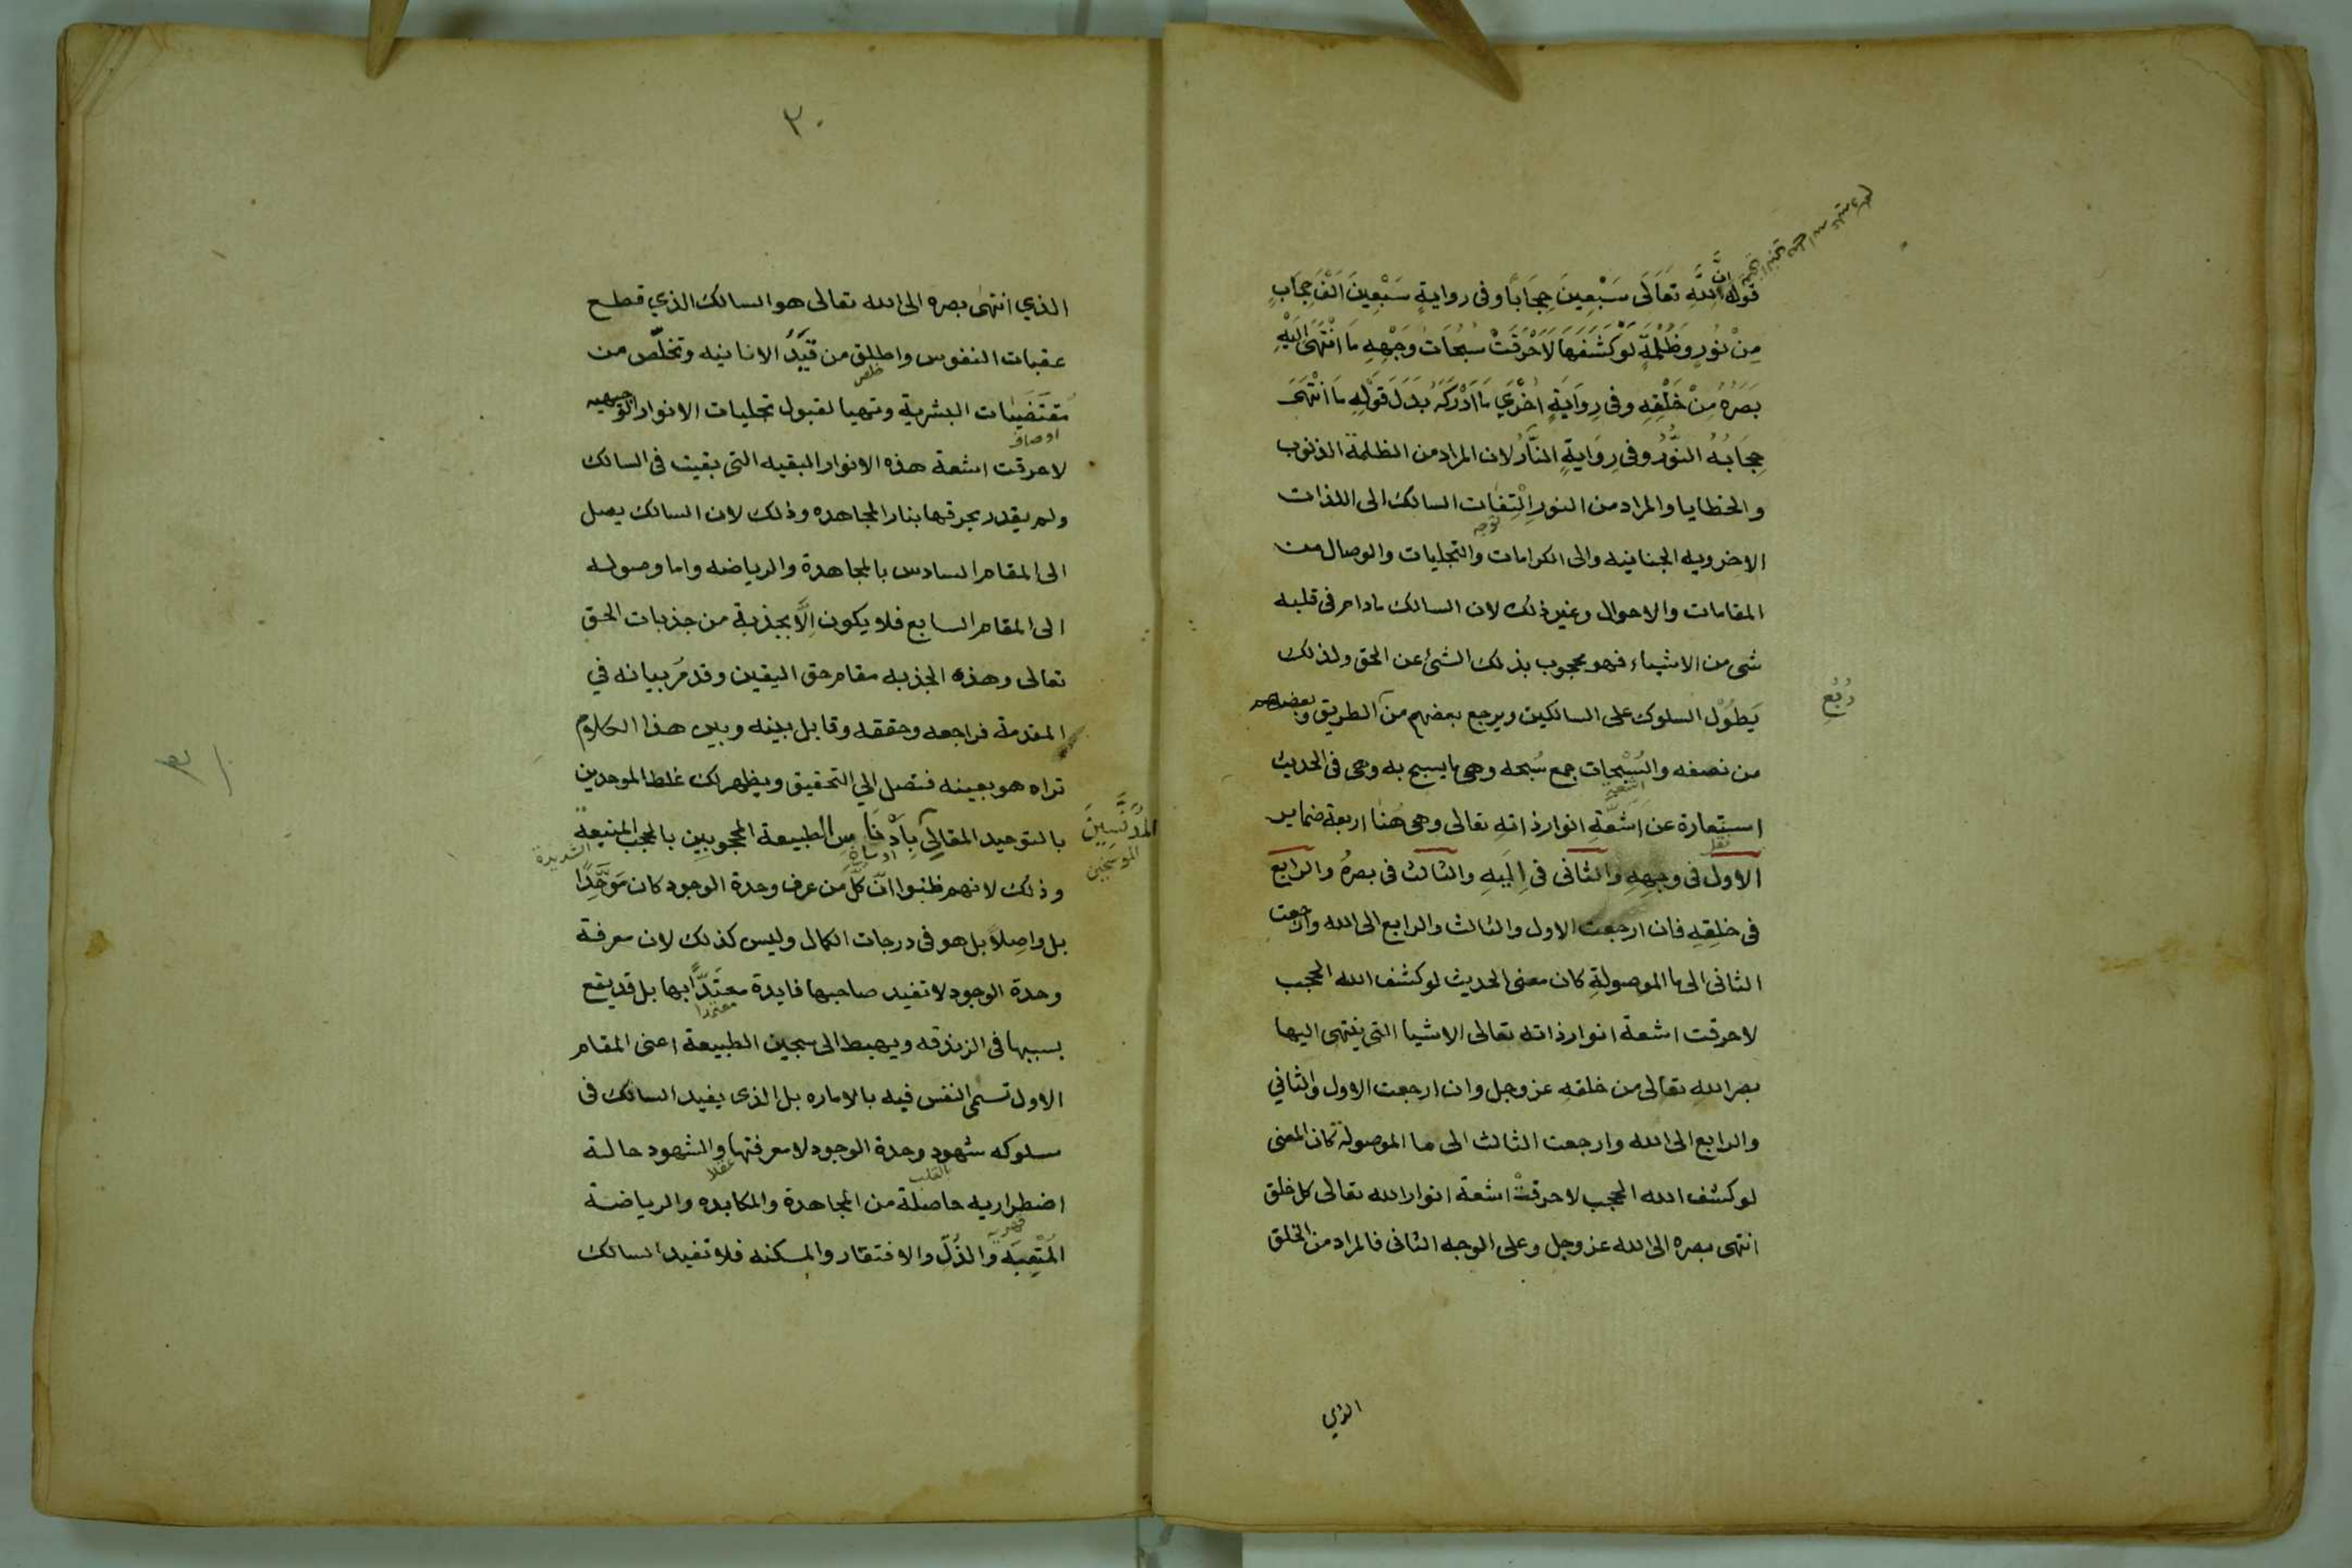 قوله اِنَّ لِلّٰهِ تَعَالَى سَبْعِينَ حِجَابًا وفى روايةٍ سَبْعِينَ اَلْفَ حِجَابٍ
مِنْ نُورٍ وَظُلْمَةٍ لَوْ كَشَفَهَا لَاَحْرَقَتْ سُبُحَاتُ وَجْهِهِ مَا انْتَهَى اِلَيْهِ
بَصَرُهُ مِنْ خَلْقِهِ وفى رِوَايَةٍ اُخْرَي مَا اَدْرَكَهُ بَدَلَ قَوْلِهِ مَا انْتَهَى
حِجَابُهُ النُّورُ وفى رِوَايَةٍ النَّارُ لان المراد من الظلمة الذنوب
والخطايا والمراد من النور اِلْتِفَات السالك الى اللذات
توجه
الاخرويه الجنانيه والى الكرامات والتجليات والوصال من
المقامات والاحوال وغير ذلك لان السالك مادام فى قلبه
شى من الاشياء فهو محجوب بذلك الشئ عن الحق ولذلك
رُبُع
يَطُوْل السلوك على السالكين ويرجع بعضهم من الطريق وبعضهم
من نصفه والسُبْحات جمع سُبحه وهى ما يسبح به وهى فى الحديث
استعارة عن اَشَعَّةِ انوار ذاته تعالى وهى هُنا اربعة ضماير
الاول فى وجهِهِ والثانى فى اِلَيهِ والثالث فى بصرهُ والرابع
فى خلقِهِ فان ارجعت الاول والثالث والرابع الى الله وارجعت
الثانى الى ما الموصولةِ كان معنى الحديث لو كشف الله الحجب
لاحرقت اشعة انوار ذاته تعالى الاشيا التى ينتهى اليها
بصر الله تعالى من خلقه عز وجل وان ارجعت الاول والثاني
والرابع الى الله وارجعت الثالث الى ما الموصولة كان المعنى
لو كشف الله الحجب لاحرقتْ اشعة انوار الله تعالى كل خلق
انتهى بصره الى الله عز وجل وعلى الوجه الثانى فالمراد من الخلق
الذي
٣٠
الذي انتهى بصره الى الله تعالى هو السالك الذي قطع
عقبات النفوس واطلق من قَيْدُ الانانيه وتخلّص من
خلص
مُقتَضَيات البشرية وتهيا لقبول تجليات الانوار
اوصاف
لاحرقت اشعة هذه الانوار البقيه التى بقيت فى السالك
ولم يقدر بحرقها بنار المجاهده وذلك لان السالك يصل
الى المقام السادس بالمجاهدة والرياضه واما وصوله
الى المقام السابع فلا يكون اِلَّا بجذبة من جذبات الحق
تعالى وهذه الجذبه مقام حق اليقين وقد مرّ بيانه في
المقدمة فراجعه وحققه وقابل بينه وبين هذا الكلام
تراه هو بعينه فتصل الي التحقيق ويظهر لك غلط الموحدين
المُدَنَّسِينَ
بالتوحيد المقالي بِاَدْنَاسِ الطبيعة المحجوبين بالحجب المنيعة
الشديدة
وذلك لانهم ظنوا انّ كلّ من عرف وحدة الوجود كان مَوَحِّدًا
بل واصِلاً بل هو فى درجات الكمال وليس كذلك لان معرفة
وحدة الوجود لا تفيد صاحبها فايدة معتدًّا بها بل قد يقع
بسببها فى الزندقه ويهبط الى سجين الطبيعة اعنى المقام
الاول تسمى النفس فيه بالاماره بل الذى يفيد السالك فى
سلوكه شهود وحدة الوجود لا معرفتها والشهود حالة
بالقلب
عقلا
اضطراريه حاصلة من المجاهدة والمكابده والرياضة
المُتْعِبَه والذُلّ والافتقار والمسكنه فلا تفيد السالك